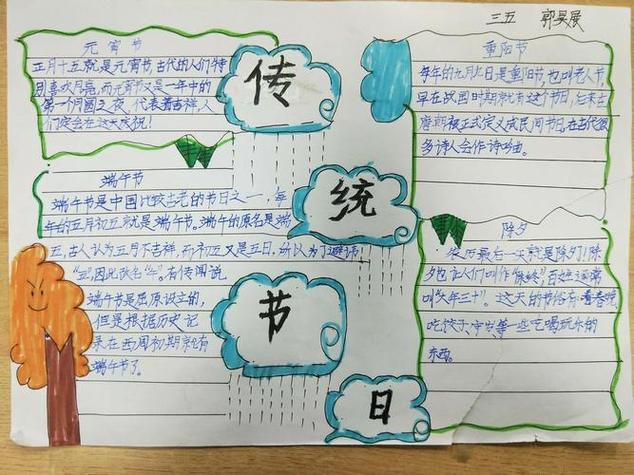 三五 郭昊展
传
统
节
日
元宵节
正月十五就是元宵节,古代的人们特
别喜欢月亮,而元宵节又是一年中的
第一个月圆之夜,代表着吉祥,人
们定会在这天庆祝!
端午节
端午节是中国比较古老的节日之一,每
年的五月初五就是端午节。端午的原名是端
五,古人认为五月不吉祥,而初五又是五日,所以为了避讳
"五",因此改名"午"。有传闻说
端午节是屈原设立的,
但是根据历史记
录在西周初期就有
端午节了。
重阳节
每年的九月九日是重阳节,也叫老人节,
早在战国时期就有这个节日,后来在
唐朝被正式定义成民间节日。在古代很
多诗人会作诗
除夕
农历最后一天就是除夕!除
夕也让人们叫作"除夜",百姓通常
叫"大年三十"。这天的节俗有:看春晚
吃饺子、守岁等一些吃喝玩乐的
东西。